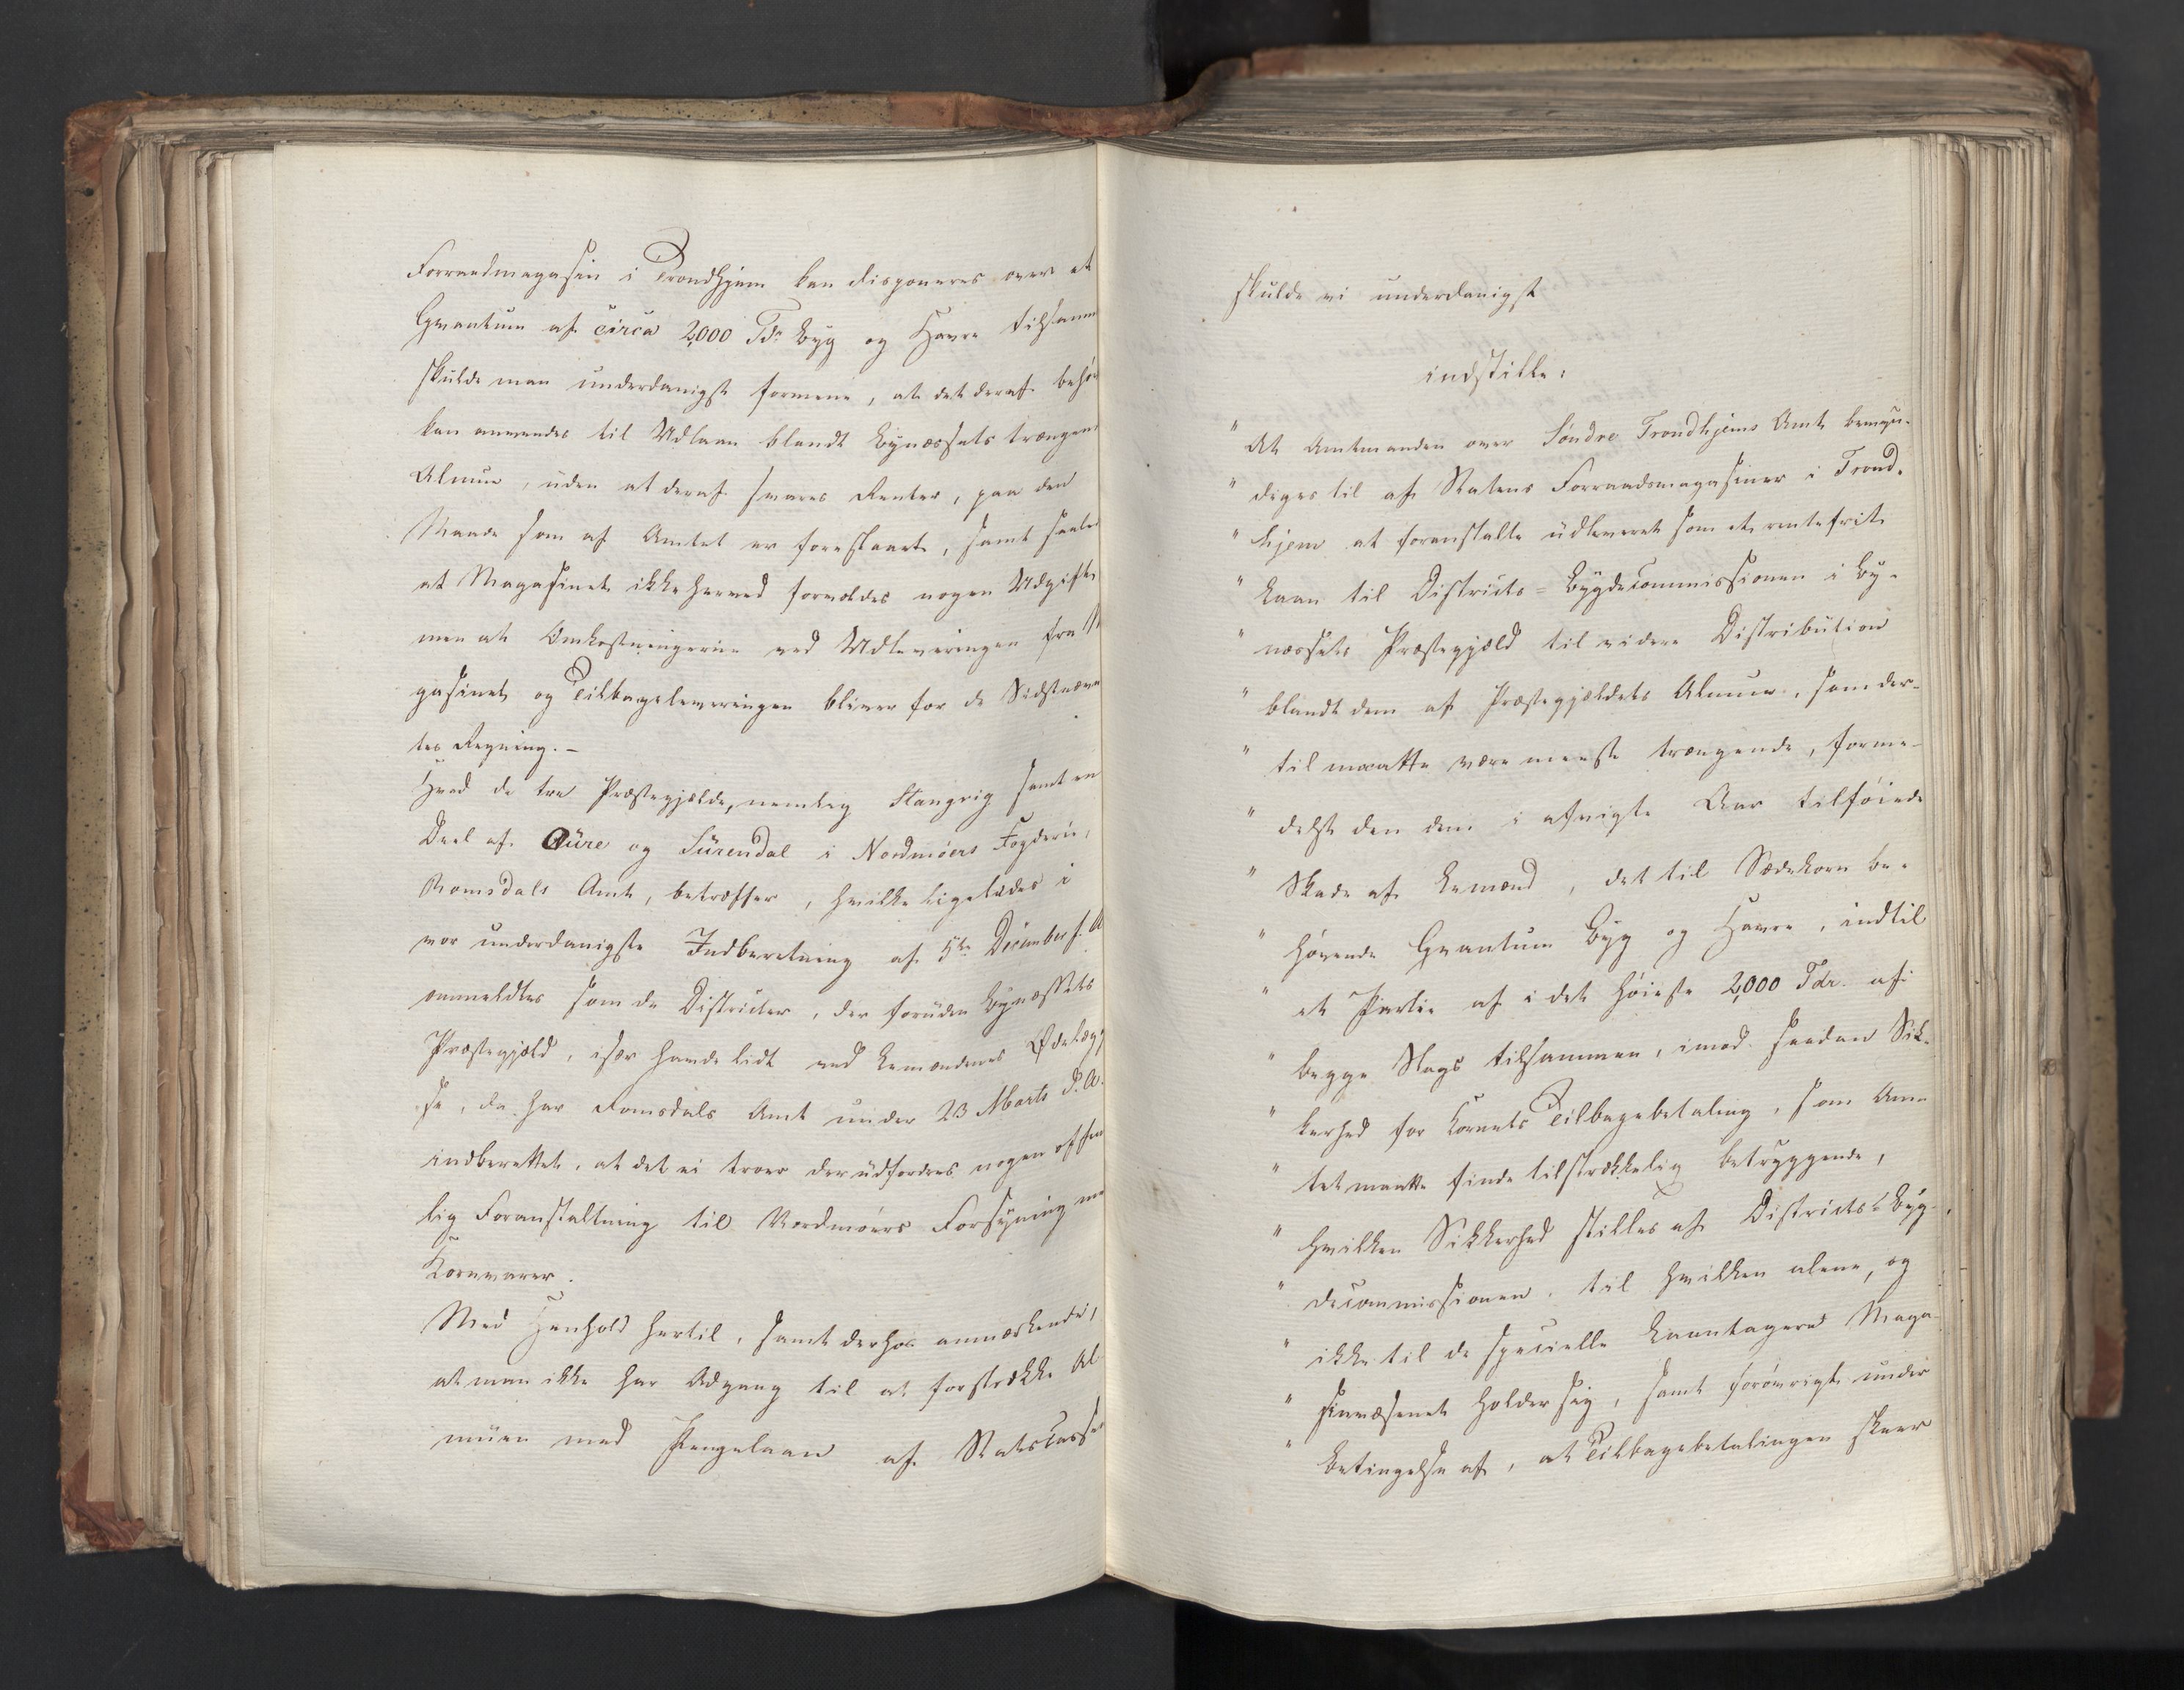 Forraadmagasin i Trondhjem kan disponeres over et
Qvantum af circa 2,000 Tdr Byg og Havre tilsamm
skulde man underdanigst formene, at det deraf behø
kan anvendes til Udlaan blandt Bynæssets trængen
Almue, uden at deraf svares Renter, paa den
Maade som af Amtet er foreslaaet, samt saale
at Magasinet ikke herved forvoldes nogen Udgift
men at Omkostningerne ved Udleveringen fra
gasinet og Tilbageleveringen bliver for de Sidstnævn
tes Regning. –
Hvad de tre Præstegjælde, nemlig Stangvig samt en
Deel af Aure og Surendal i Nordmöers Fogderie,
Romsdals Amt, betræffer, hvilke ligeledes i
vor underdanigste Indberetning af 5te December f. A
anmeldtes som de Districter, der foruden Bynæssets
Præstegjæld, især havde lidt ved Lemændenes Ødelæg
se, da har Romsdals Amt under 23 Marts d. A.
indberettet, at det ei troer der udfordres nogen offen
lig Foranstaltning til Nordmöers Forsyning me
Kornvarer.
Med Henhold hertil, samt derhos anmærkende,
at man ikke har Adgang til at forstrække Al
muen med Pengelaan af Statscassen
skulde vi underdanigst
indstille:
" At Amtmanden over Söndre Trondhjems Amt bemyn-
" diges til af Statens Forraadsmagasiner i Trond-
" hjem at foranstalte udleveret som et rentefrit
" Laan til Districts-Bygdecommissionen i By-
" næssets Præstegjæld til videre Distribution
" blandt dem af Præstegjældets Almue, som der-
" til maatte være meest trængende, forme-
" delst den dem i afvigte Aar tilföiede
" Skade af Lemænd, det til Sædekorn be-
" hövende Qvantum Byg og Havre, indtil
" et Partie af i det höieste 2,000 Tdr. af
" begge Slags tilsammen, imod saadan Sik-
" kerhed for Kornets Tilbagebetaling, som Am-
" tet maatte finde tilstrækkelig betryggende,
" hvilken Sikkerhed stilles af Districts-Byg-
" decommissionen, til hvilken alene, og
" ikke til de specielle Laantagere Maga-
" sinvæsenet holder sig, samt forövrigt under
" Betingelse af, at Tilbagebetalingen skeer